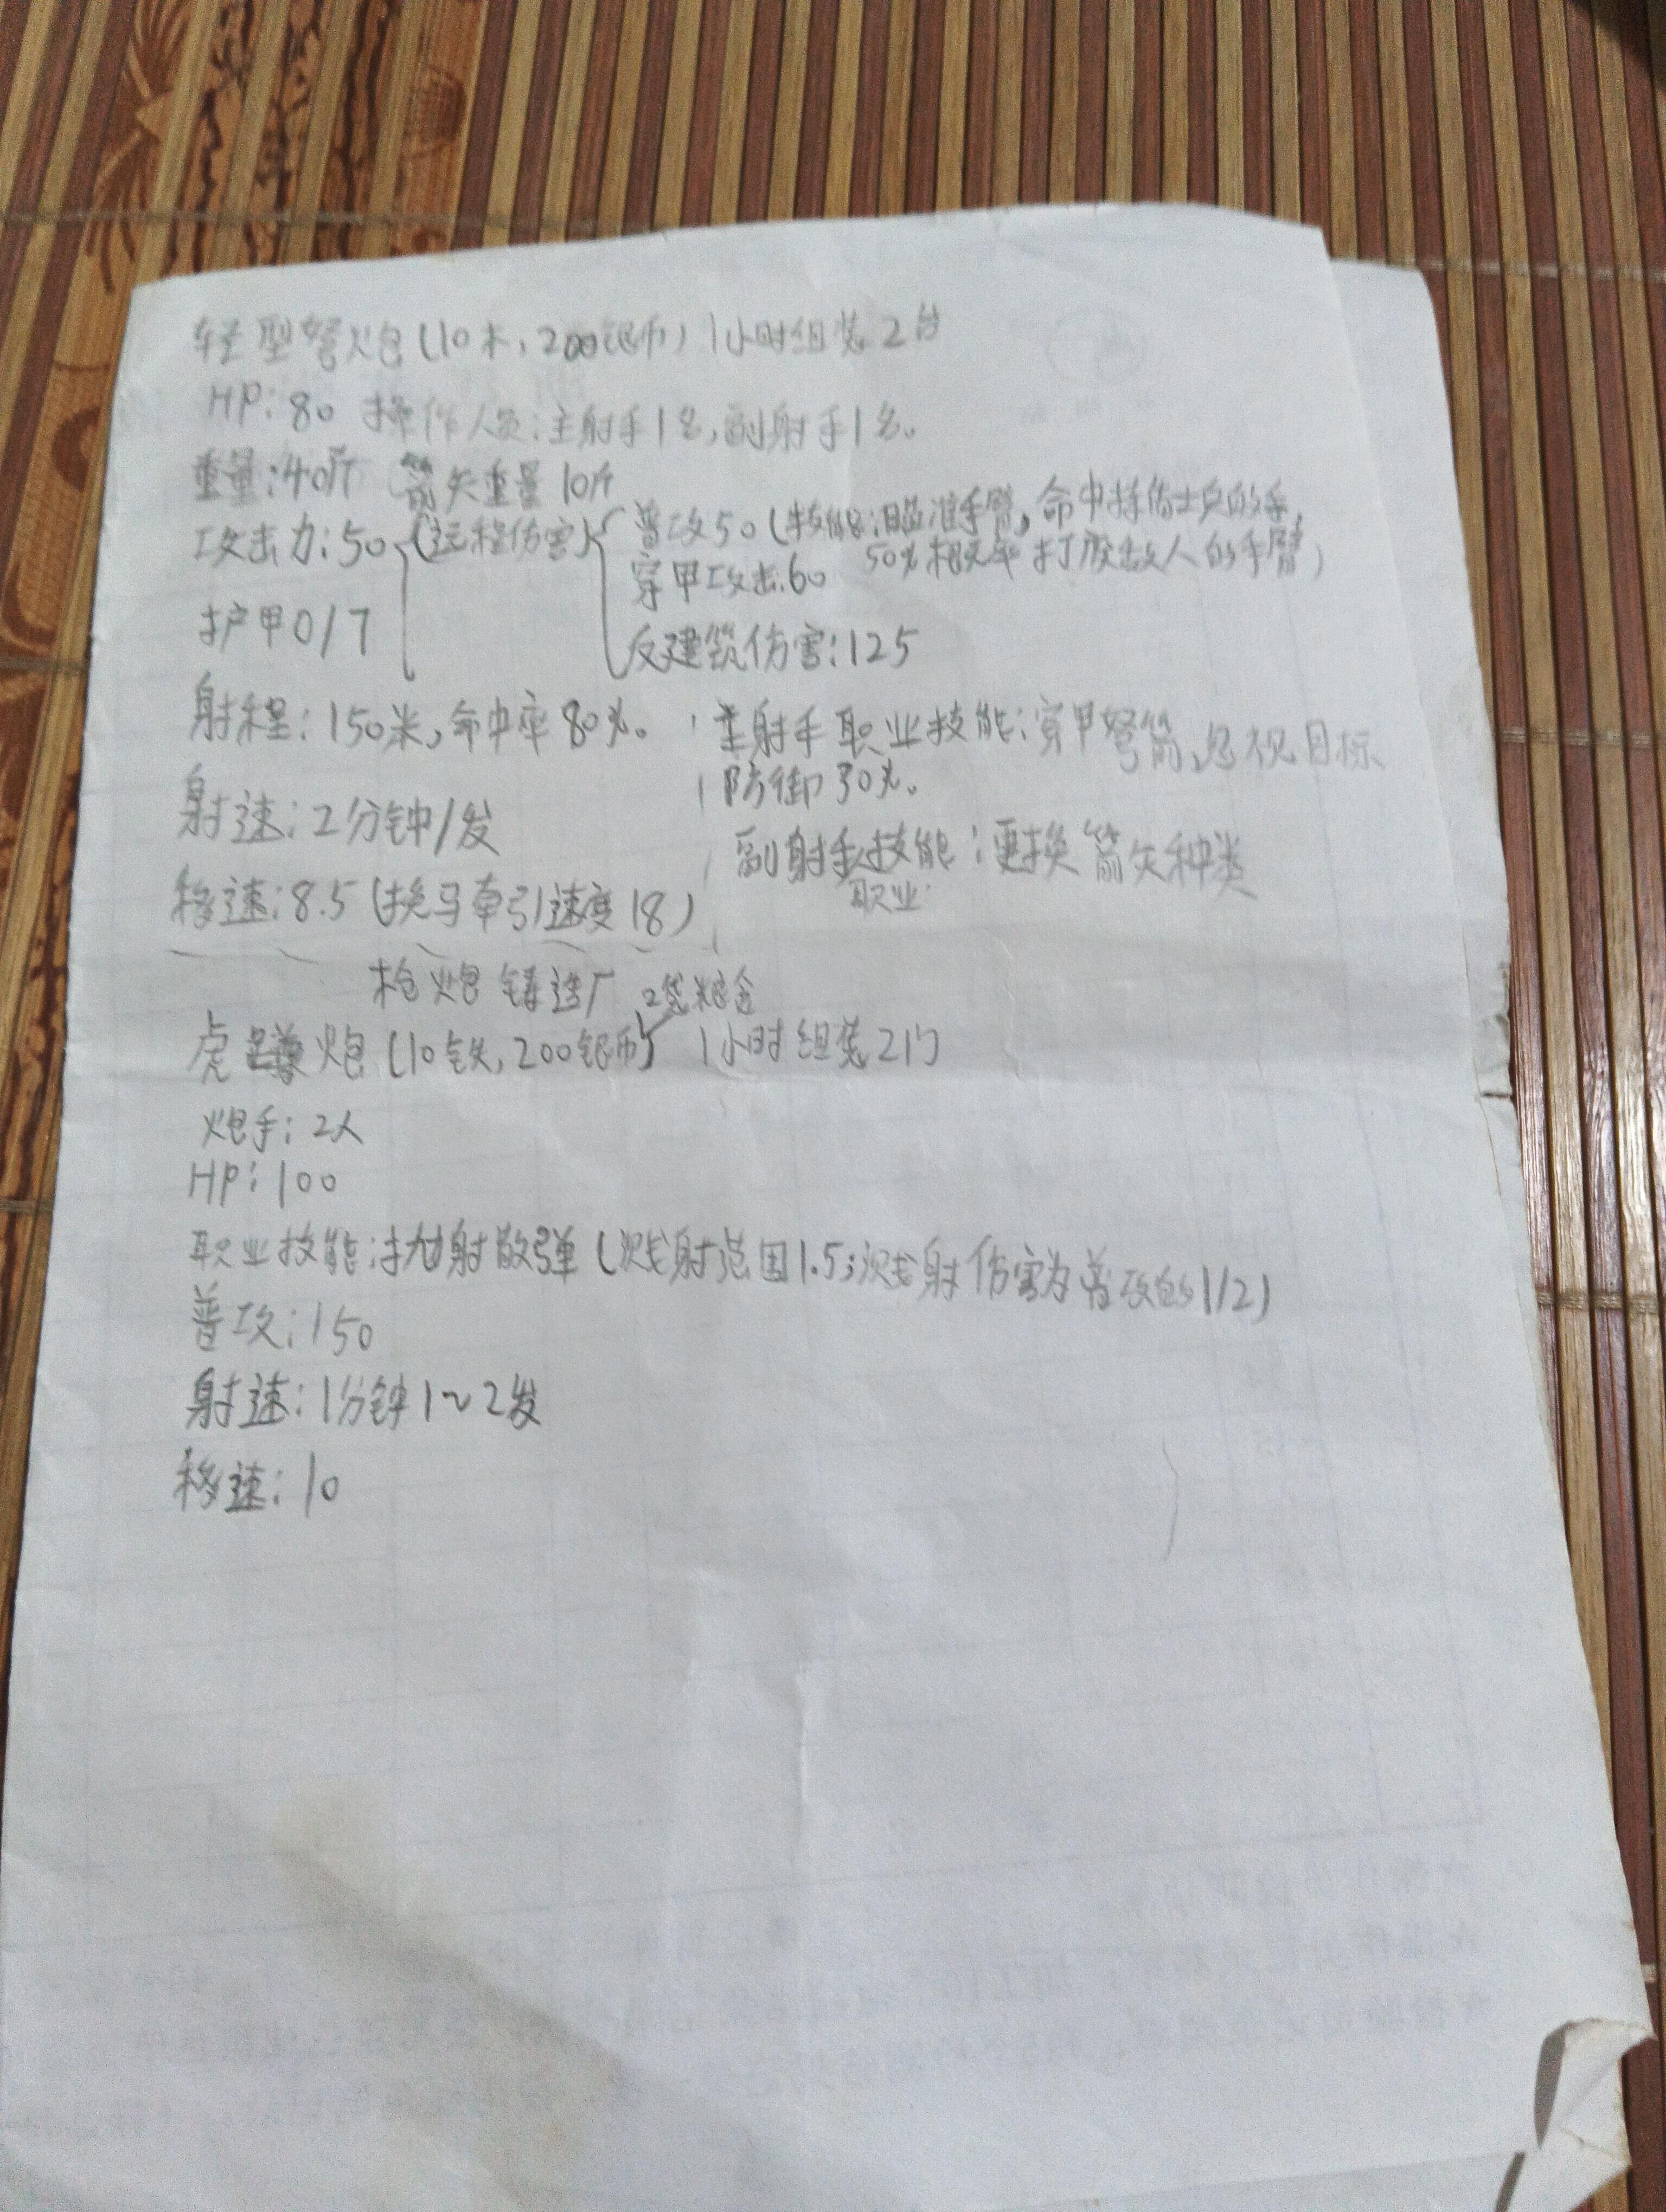 轻型弩炮(10木,200银币)1小时组装2台
HP:80 操作人员:主射手1名,副射手1名。
重量:40斤 箭矢重量10斤
攻击力:50(远程伤害)
普攻50(技能:瞄准手臂,命中士兵的手,
50%概率打敌人的手臂)
穿甲攻击:60
护甲0/7
反建筑伤害:125
射程:150米,命中率80%。
主射手职业技能:穿甲弩箭,忽视目标
防御30%。
射速:2分钟/发
副射手职业技能:更换箭矢种类
移速:8.5(挽马牵引速度18)
枪炮铸造厂
2袋粮食
虎蹲炮(10铁,200银币)1小时组装2门
炮手:2人
HP:100
职业技能:抛射散弹(溅射范围1.5;溅射伤害为普攻的1/2)
普攻:150
射速:1分钟1~2发
移速:10